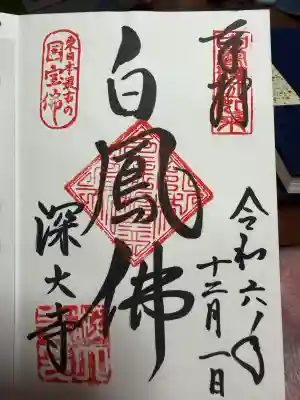 奉拝
令和六年
十二月一日
白鳳佛
東日本最古の
国宝佛
深大寺